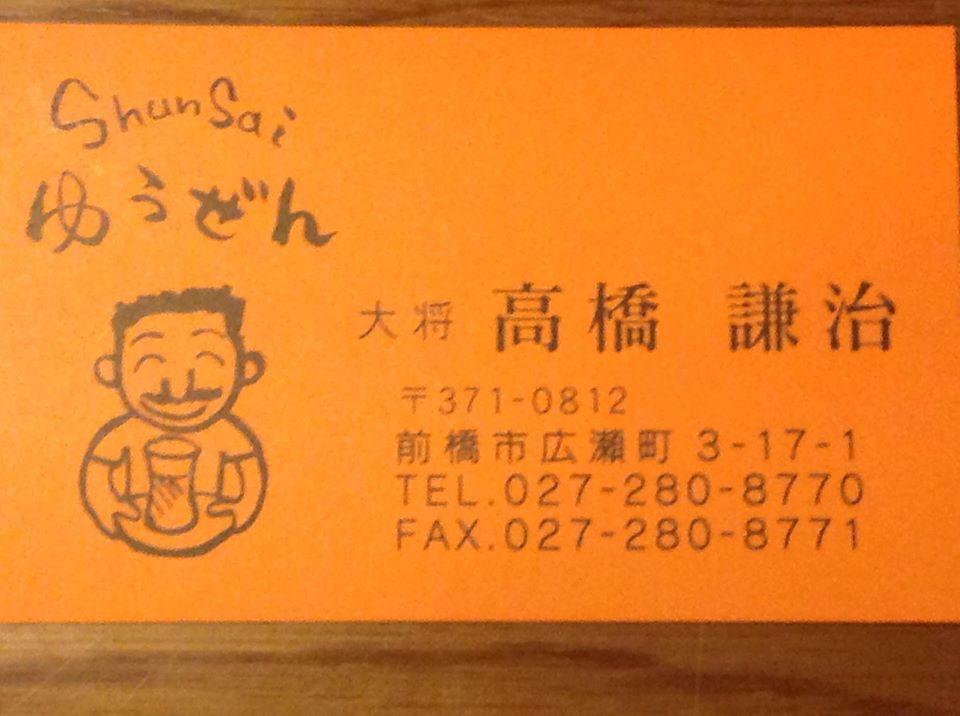 ShunSai
ゆうぜん
大将 高橋 謙治
〒371-0812
前橋市広瀬町 3-17-1
TEL.027-280-8770
FAX.027-280-8771